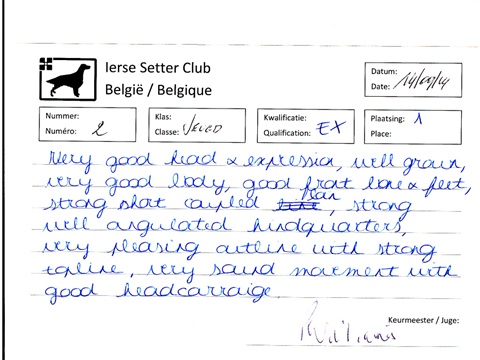 Ierse Setter Club
België / Belgique
Datum:
Date: 14/09/14
Nummer:
Numéro: 2
Klas:
Classe: JEUGD
Kwalificatie:
Qualification: EX
Plaatsing: 1
Place:
Very good head & expression, well grown,
very good body, good front bone & feet,
strong short coupled loin, strong
well angulated hindquarters,
very pleasing outline with strong
topline, very sound movement with
good headcarraige.
Keurmeester / Juge: